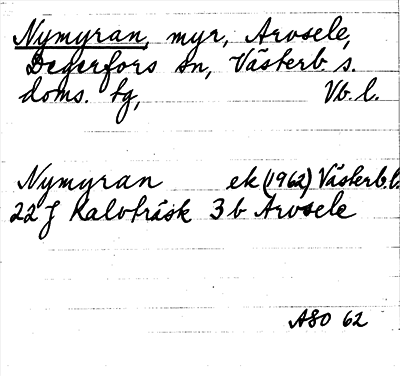 Nymyran, myr, Arvsele,
Degerfors sn, Västerb. s.
doms. tg, Vb. l.
Nymyran ek (1962) Västerb. l.
22 J Kalvträsk 3 b Arvsele
ASO 62